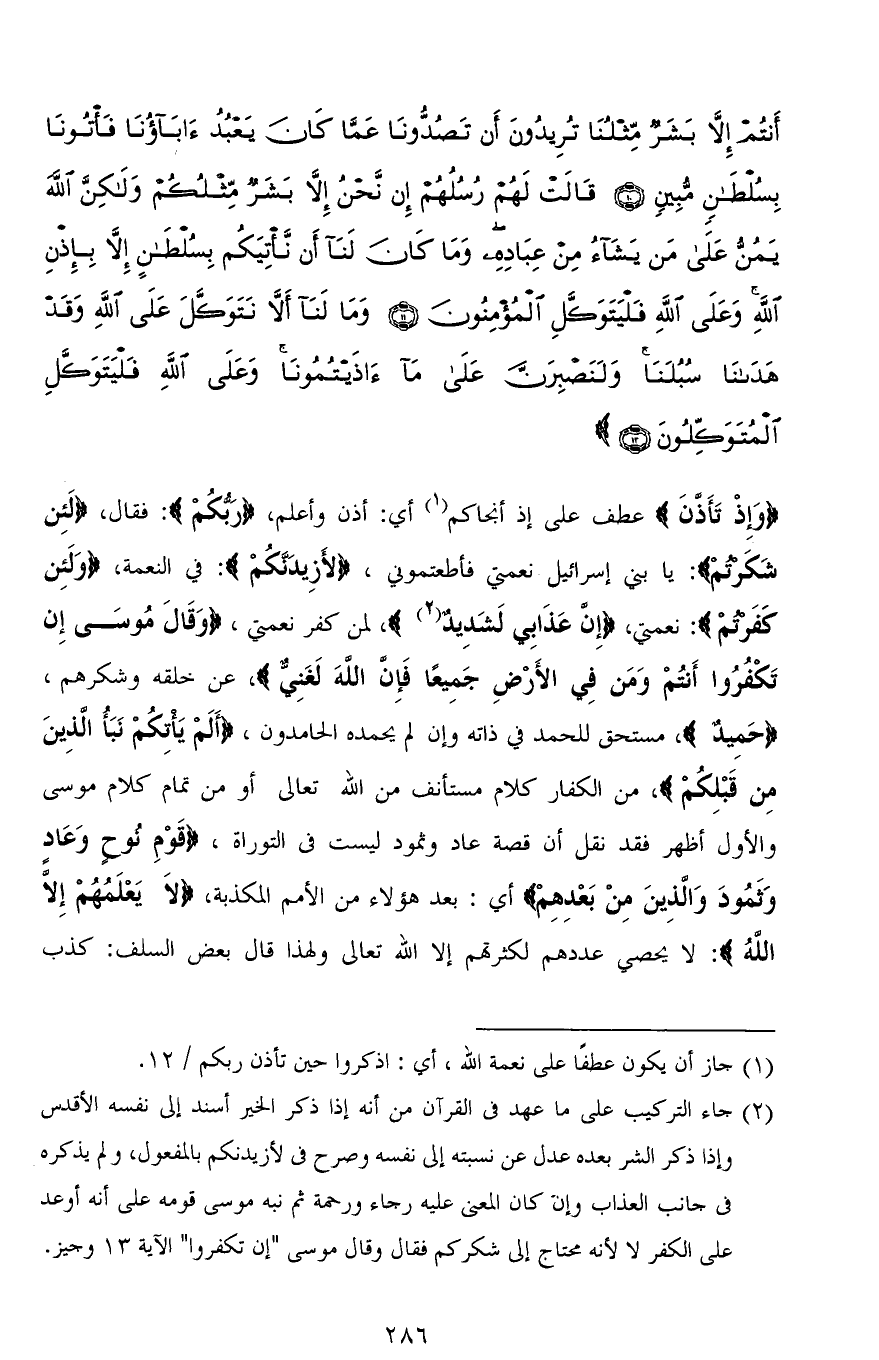 أَنتُمْ إِلَّا بَشَرٌ مِّثْلُنَا تُرِيدُونَ أَن تَصُدُّونَا عَمَّا كَانَ يَعْبُدُ ءَابَآؤُنَا فَأْتُونَا
بِسُلْطَٰنٍ مُّبِينٍ ۝١٠ قَالَتْ لَهُمْ رُسُلُهُمْ إِن نَّحْنُ إِلَّا بَشَرٌ مِّثْلُكُمْ وَلَٰكِنَّ ٱللَّهَ
يَمُنُّ عَلَىٰ مَن يَشَآءُ مِنْ عِبَادِهِۦۖ وَمَا كَانَ لَنَآ أَن نَّأْتِيَكُم بِسُلْطَٰنٍ إِلَّا بِإِذْنِ
ٱللَّهِۚ وَعَلَى ٱللَّهِ فَلْيَتَوَكَّلِ ٱلْمُؤْمِنُونَ ۝١١ وَمَا لَنَآ أَلَّا نَتَوَكَّلَ عَلَى ٱللَّهِ وَقَدْ
هَدَىٰنَا سُبُلَنَاۚ وَلَنَصْبِرَنَّ عَلَىٰ مَآ ءَاذَيْتُمُونَاۚ وَعَلَى ٱللَّهِ فَلْيَتَوَكَّلِ
ٱلْمُتَوَكِّلُونَ ۝١٢ ﴾
﴿وَإِذْ تَأَذَّنَ ﴾ عطف على إذ أنجاكم(١) أي: أذن وأعلم، ﴿رَبُّكُمْ ﴾: فقال، ﴿لَئِن
شَكَرْتُمْ﴾: يا بني إسرائيل نعمتي فأطعتموني ، ﴿لأَزِيدَنَّكُمْ ﴾: في النعمة، ﴿وَلَئِن
كَفَرْتُمْ ﴾: نعمتي، ﴿إِنَّ عَذَابِي لَشَدِيدٌ(٢) ﴾، لمن كفر نعمتي ، ﴿وَقَالَ مُوسَــى إِن
تَكْفُرُوا أَنتُمْ وَمَن فِي الأَرْضِ جَمِيعًا فَإِنَّ اللَّهَ لَغَنِيٌّ ﴾، عن خلقه وشكرهم ،
﴿حَمِيدٌ ﴾، مستحق للحمد في ذاته وإن لم يحمده الحامدون ، ﴿أَلَمْ يَأْتِكُمْ نَبَأُ الَّذِينَ
مِن قَبْلِكُمْ ﴾، من الكفار كلام مستأنف من الله تعالى أو من تمام كلام موسى
والأول أظهر فقد نقل أن قصة عاد وثمود ليست فى التوراة ، ﴿قَوْمِ نُوحٍ وَعَادٍ
وَثَمُودَ وَالَّذِينَ مِنْ بَعْدِهِمْ﴾ أي : بعد هؤلاء من الأمم المكذبة، ﴿لاَ يَعْلَمُهُمْ إِلاَّ
اللَّهُ ﴾: لا يحصي عددهم لكثرتهم إلا الله تعالى ولهذا قال بعض السلف: كذب
(١) جاز أن يكون عطفًا على نعمة الله ، أي : اذكروا حين تأذن ربكم / ١٢.
(٢) جاء التركيب على ما عهد فى القرآن من أنه إذا ذكر الخير أسند إلى نفسه الأقدس
وإذا ذكر الشر بعده عدل عن نسبته إلى نفسه وصرح فى لأزيدنكم بالمفعول، ولم يذكره
فى جانب العذاب وإن كان المعنى عليه رجاء ورحمة ثم نبه موسى قومه على أنه أوعد
على الكفر لا لأنه محتاج إلى شكركم فقال وقال موسى "إن تكفروا" الآية ١٣ وجيز.
٢٨٦